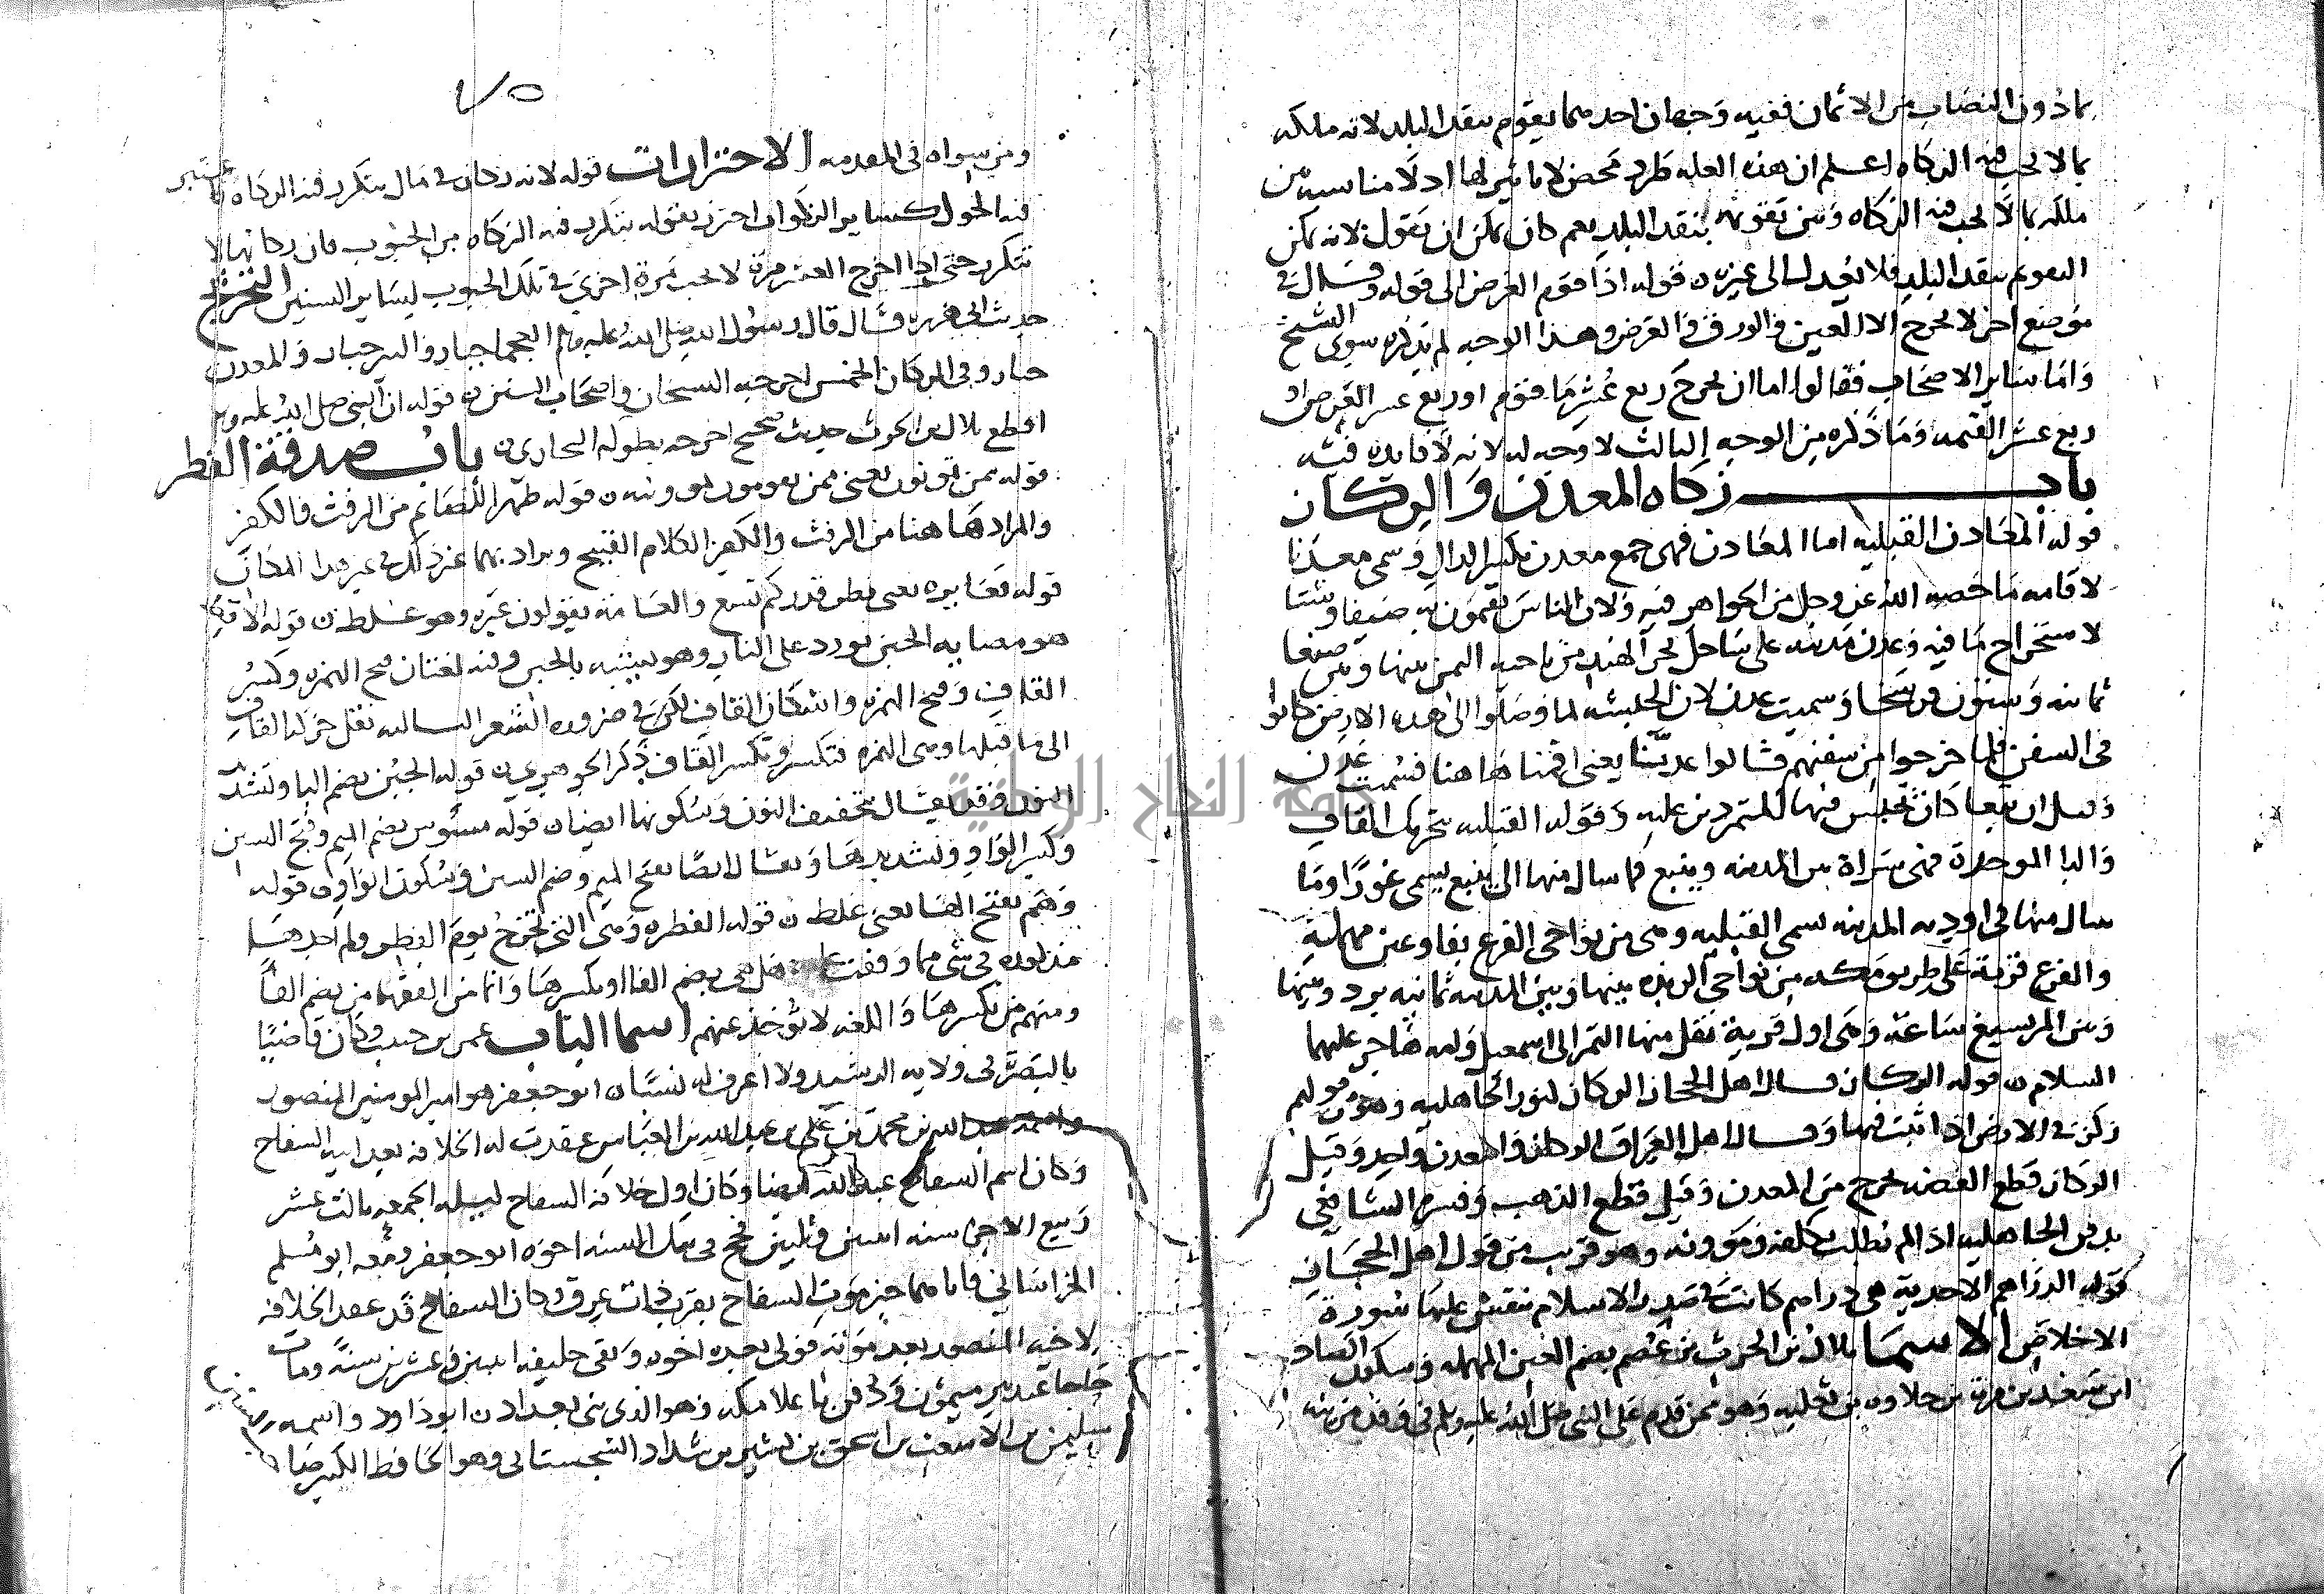 بما دون النصاب من الاثمان ففيه وجهان احدهما يقوم بنقد البلد لانه ملكه
بما لا يجب فيه الزكاه اعلم ان هذه العله طرد محض لا تاثير لها اذ لا مناسبه بين
ملكه بما لا يجب فيه الزكاه وبين تقويمه بنقد البلد نعم كان يمكن ان يقول لانه يمكن
التقويم بنقد البلد فلا يعدل الى غيره ن قوله اذا قوم العرض الى قوله وقال في
موضع اخر لا يخرج الا العين والورق والعرض وهذا الوجه لم يذكره سوى الشيخ
واما ساير الاصحاب فقالوا اما ان يخرج ربع عشر ما قوم او ربع عشر العرض او
ربع عشر القيمه وما ذكره من الوجه الثالث لا وجه له لانه لا فايده فيه
باب زكاه المعدن والركان
قوله المعادن القبليه اما المعادن فهى جمع معدن بكسر الدال وسمى معدنا
لاقامه ما خصه الله عز وجل من الجواهر فيه ولان الناس يقيمون به صيفا وشتا
لاستخراج ما فيه وعدن مدينه على ساحل بحر الهند من ناحيه اليمن بينها وبين صنعا
ثمانيه وستون فرسخا وسميت عدن لان الحبشه لما وصلوا الى هذه الارض كانوا
فى السفن فلما خرجوا من سفنهم قالوا عدنّا يعنى اقمنا ها هنا فسميت عدن
وقيل ان تبعا كان يحبس فيها المتمردين عليه وقوله القبليه بتحريك القاف
والبا الموحده فهى سراة بين المدينه وينبع فما سال منها الى ينبع يسمى غورا وما
سال منها فى اوديه المدينه سمى القبليه وهى من نواحى الفرع بفا وعين مهمله
والفرع قرية على طريق مكه من نواحى الربذه بينها وبين المدينه ثمانيه برد وبينها
وبين المريسيع ساعة وهى اول قرية نقل منها التمر الى اسمعيل وامه هاجر عليهما
السلام ن قوله الركان قال اهل الحجاز الركان كنوز الجاهليه وهو من قولهم
ركن فى الارض اذا ثبت فيها وقال اهل العراق الركان والمعدن واحد وقيل
الركان قطع الفضه يخرج من المعدن وقيل قطع الذهب وفسره الشافعى
بدفن الجاهليه اذا لم يطلب بكلفه ومؤونه وهو قريب من قول اهل الحجاز
قوله الدراهم الاحدية هى دراهم كانت فى صدر الاسلام نقش عليها سورة
الاخلاص الاسما بلال بن الحرث بن عصم بضم العين المهمله وسكون الصاد
ابن سعد بن مرة بن خلاوه بن ثعلبه وهو ممن قدم على النبى صلى الله عليه وسلم فى وفد مزينه
٧٥
ومن سواه فى المقدمه الاحترازات قوله لانه زكاة فى مال يتكرر فيه الزكاه فاعتبر
فيه الحول كساير الزكوات احترز بقوله يتكرر فيه الزكاه من الحبوب فان زكاتها لا
تتكرر حتى اذا اخرج العشر مرة لا يجب مرة اخرى فى تلك الحبوب لساير السنين التخريج
حديث ابى هريره قال قال رسول الله صلى الله عليه وسلم العجما جبار والبير جبار والمعدن
جبار وفى الركان الخمس اخرجه الشيخان واصحاب السنن ن قوله ان النبى صلى الله عليه وسلم
اقطع بلال بن الحرث حديث صحيح اخرجه بطوله البخارى ن باب صدقة الفطر
قوله ممن تمونون يعنى ممن تقومون بمؤونته ن قوله طهرا للصايم من الرفث والكفر
والمراد ها هنا من الرفث والكفر الكلام القبيح ويراد بهما غير ذلك فى غير هذا المكان
قوله فعايره يعنى ينظر قدر كم تسع والعامة يقولون عيّره وهو غلط ن قوله الاقط
هو مصابه الجبن يورد على النار وهو يشبه بالجبن وفيه لغتان فتح الهمزه وكسر
القاف وفتح الهمزه واسكان القاف لكن فى ضروره الشعر الثانيه نقل حركة القاف
الى ما قبلها وهى الهمزه فتكسر وتكسر القاف ذكر الجوهرى ن قوله الجبن بضم البا وتشد
النون وقد يقال بتخفيف النون وسكونها ايضا ن قوله مسوس بضم الميم وفتح السين
وكسر الواو وتشديدها ويقال ايضا بفتح الميم وضم السين وسكون الواو ن قوله
وهم بفتح الها يعنى غلط ن قوله الفطره وهى التى تخرج يوم الفطر ولم اجدها
مذكوره فى شى مما وقفت عليه هل هى بضم الفا او بكسرها وانما من الفقها من يضم الفا
ومنهم من يكسرها واللغه لا تؤخذ عنهم اسما الباب عمر بن حبيب وكان قاضيا
بالبصره فى ولايه الرشيد ولا اعرف له نسبا ن ابو جعفر هو امير المومنين المنصور
واسمه عبد الله بن محمد بن على بن عبد الله بن العباس عقدت له الخلافه بعد اخيه السفاح
وكان اسم السفاح عبد الله ايضا وكان اول خلافة السفاح ليله الجمعه ثالث عشر
ربيع الاخر سنه اثنين وثلثين فحج فى تلك السنه اخوه ابو جعفر ومعه ابو مسلم
الخراسانى فاتاهما خبر موت السفاح بقرب ذات عرق وكان السفاح قد عقد الخلافه
لاخيه المنصور بعد موته فولى بعده اخوه وبقى خليفه اثنين وعشرين سنة ومات
حاجا عند بير ميمون ودفن باعلا مكه وهو الذى بنى بغداد ن ابو داود واسمه
سليمن بن الاشعث بن اسحق بن بشير بن شداد السجستانى وهو الحافظ الكبير
جامعة النجاح الوطنية